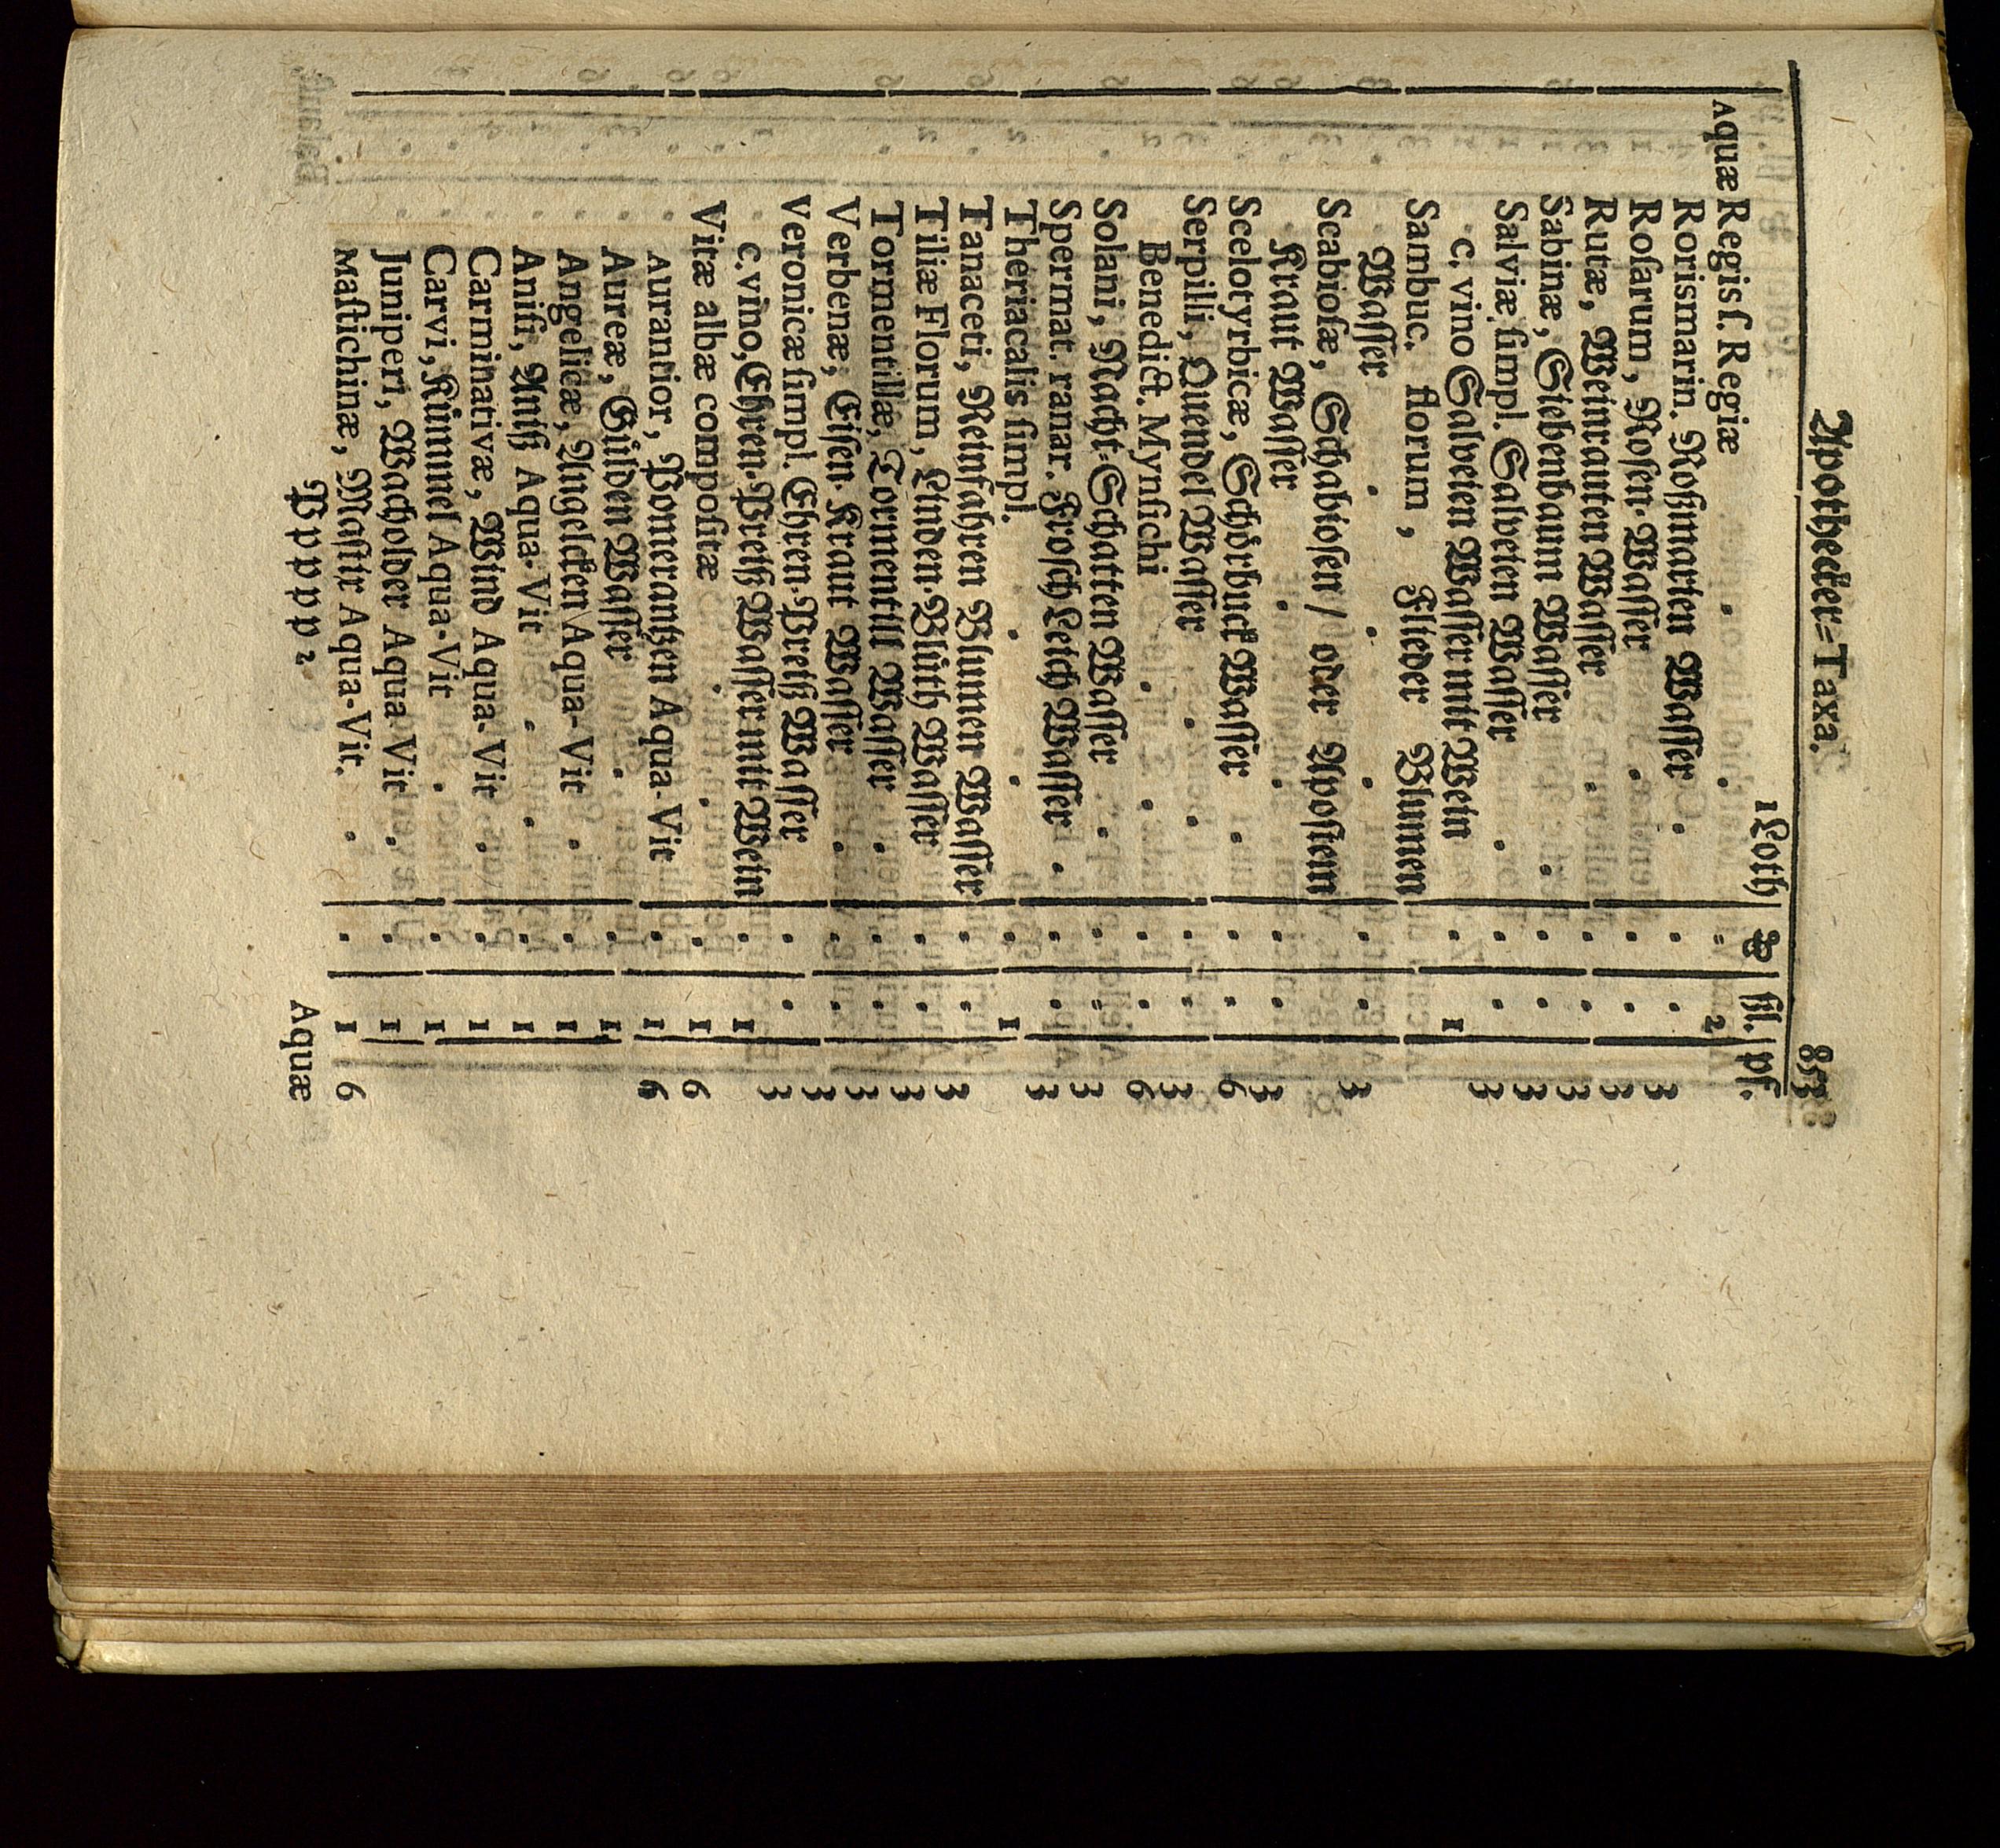 Apothecker=Taxa. 853
1 Loth | Rl | ßl. | pf.
Aquæ Regis s. Regiæ . . = 2
Rorismarin. Roßmarien Wasser . . . 3
Roſarum, Roſen-Waſſer . . . 3
Rutæ, Weinrauten Waſſer . . . 3
Sabinæ, Siebenbaum Waſſer . . . 3
Salviæ ſimpl. Salveien Waſſer . . . 3
c. vino Salveien Waſſer mit Wein . 1
Sambuc. florum, Flieder Blumen
Waſſer . . . . 3
Scabioſæ, Schabioſen / oder Apoſtem
Kraut Waſſer . . . . 3
Scelotyrbicæ, Schörbuck Waſſer . . = 6
Serpilli, Quendel Waſſer . . . . 3
Benedict. Mynſichi . . . . 6
Solani, Nacht=Schatten Waſſer . . = 3
Spermat. ranar. Froſch Leich Waſſer . . . 3
Theriacalis ſimpl. . . . 1
Tanaceti, Reinfahren Blumen Waſſer . . 3
Tiliæ Florum, Linden-Blüth Waſſer . . 3
Tormentillæ, Tormentill Waſſer . . . 3
Verbenæ, Eiſen-Kraut Waſſer . . . 3
Veronicæ ſimpl. Ehren-Preiß Waſſer . . 3
c. vino, Ehren-Preiß Waſſer mit Wein . 1
Vitæ albæ compoſitæ . . 1 6
Aurantior, Pomerantzen Aqua-Vit . 1 6
Aureæ, Gülden Waſſer . . 1
Angelicæ, Angelicken Aqua-Vit . . 1
Aniſi, Aniß Aqua-Vit . . . 1
Carminativæ, Wind Aqua-Vit . . 1
Carvi, Kümmel Aqua-Vit . . 1
Juniperi, Wacholder Aqua Vit . . 1
Maſtichinæ, Maſtix Aqua-Vit. . . 1 6
Ppppp 2 Aquæ